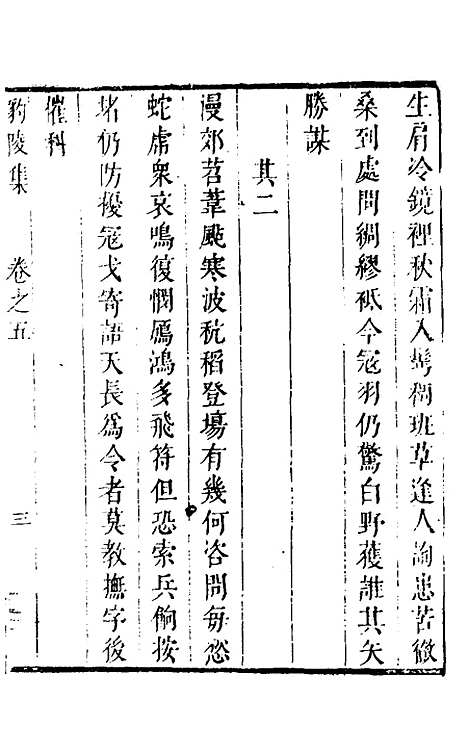 生肩冷鏡裡秋霜入鬢稠班草逢人詢患苦徹
桑到處問綢繆祗今冦羽仍驚白野獲誰其矢
勝謀
其二
漫郊苕葦颭寒波秔稻登場有幾何咨問每愁
蛇虎衆哀鳴復憫鴈鴻多飛符但恐索兵餉按
堵仍防擾冦戈寄語天長爲令者莫教撫字後
催科
豹陵集　卷之五　三